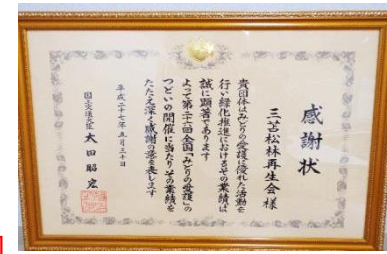 感謝状
三苫松林再生会 様
貴団体はみどりの愛護に優れた活動を
行い緑化推進におけるその業績は
誠に顕著であります
よって第二十六回全国「みどりの愛護」の
つどいの開催に当たりその業績を
たたえ深く感謝の意を表します
平成二十七年五月三十日
国土交通大臣 太田昭宏